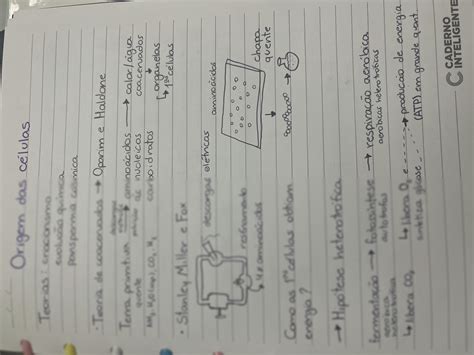 Origem das células
Teorias: criacionismo
evolução química
panspermia cósmica
• Teoria de coacervados → Oparim e Haldane
Terra primitiva → aminoácidos → calor/água
quente ác nucleicos coacervados
NH₃, H₂O(vap), CO₂, H₂ carboidratos ↳ organelas
↳ 1ªs células
• Stanley Miller e Fox
descargas elétricas
resfriamento
↳ 4x aminoácidos
aminoácidos
chapa
quente
Como as 1ª células obtiam
energia?
→ Hipótese heterotrófica
Fermentação → fotossíntese → respiração aeróbica
heterotrófica autotrofos aeróbicas heterotróficas
↳ libera CO₂ ↳ libera O₂ e → produção de energia
sintetiza glicose (ATP) em grande quant.
CADERNO
INTELIGENTE